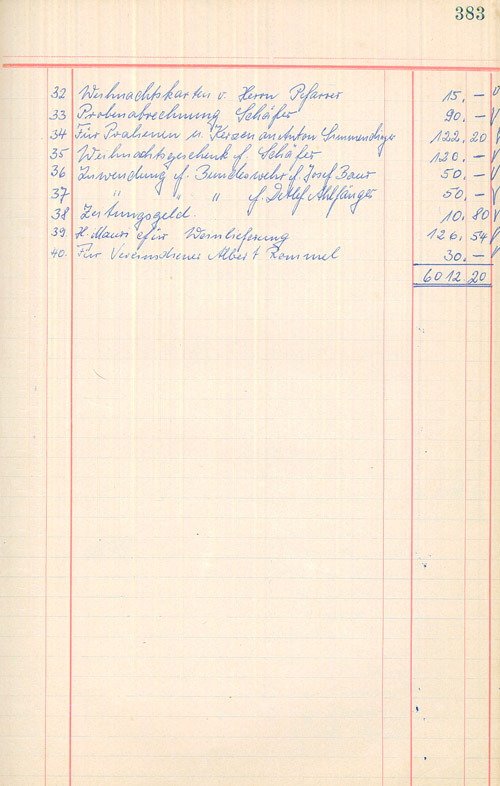 383
32 Weihnachtskarten v. Herrn Pfarrer 15. —
33 Probenabrechnung Schäfer 90. —
34 Für Pralienen u. Kerzen an Anton 122,20
35 Weihnachtsgeschenk f. Schäfer 120. —
36 Zuwendung f. Bundeswehr f. Josef Baur 50. —
37 " " " f. Detlef Ahlfänger 50. —
38 Zeitungsgeld. 10,80
39. H. Mauri für Weinlieferung 126,54
40. Für Vereinsdiener Albert Rommel 30. —
6012.20